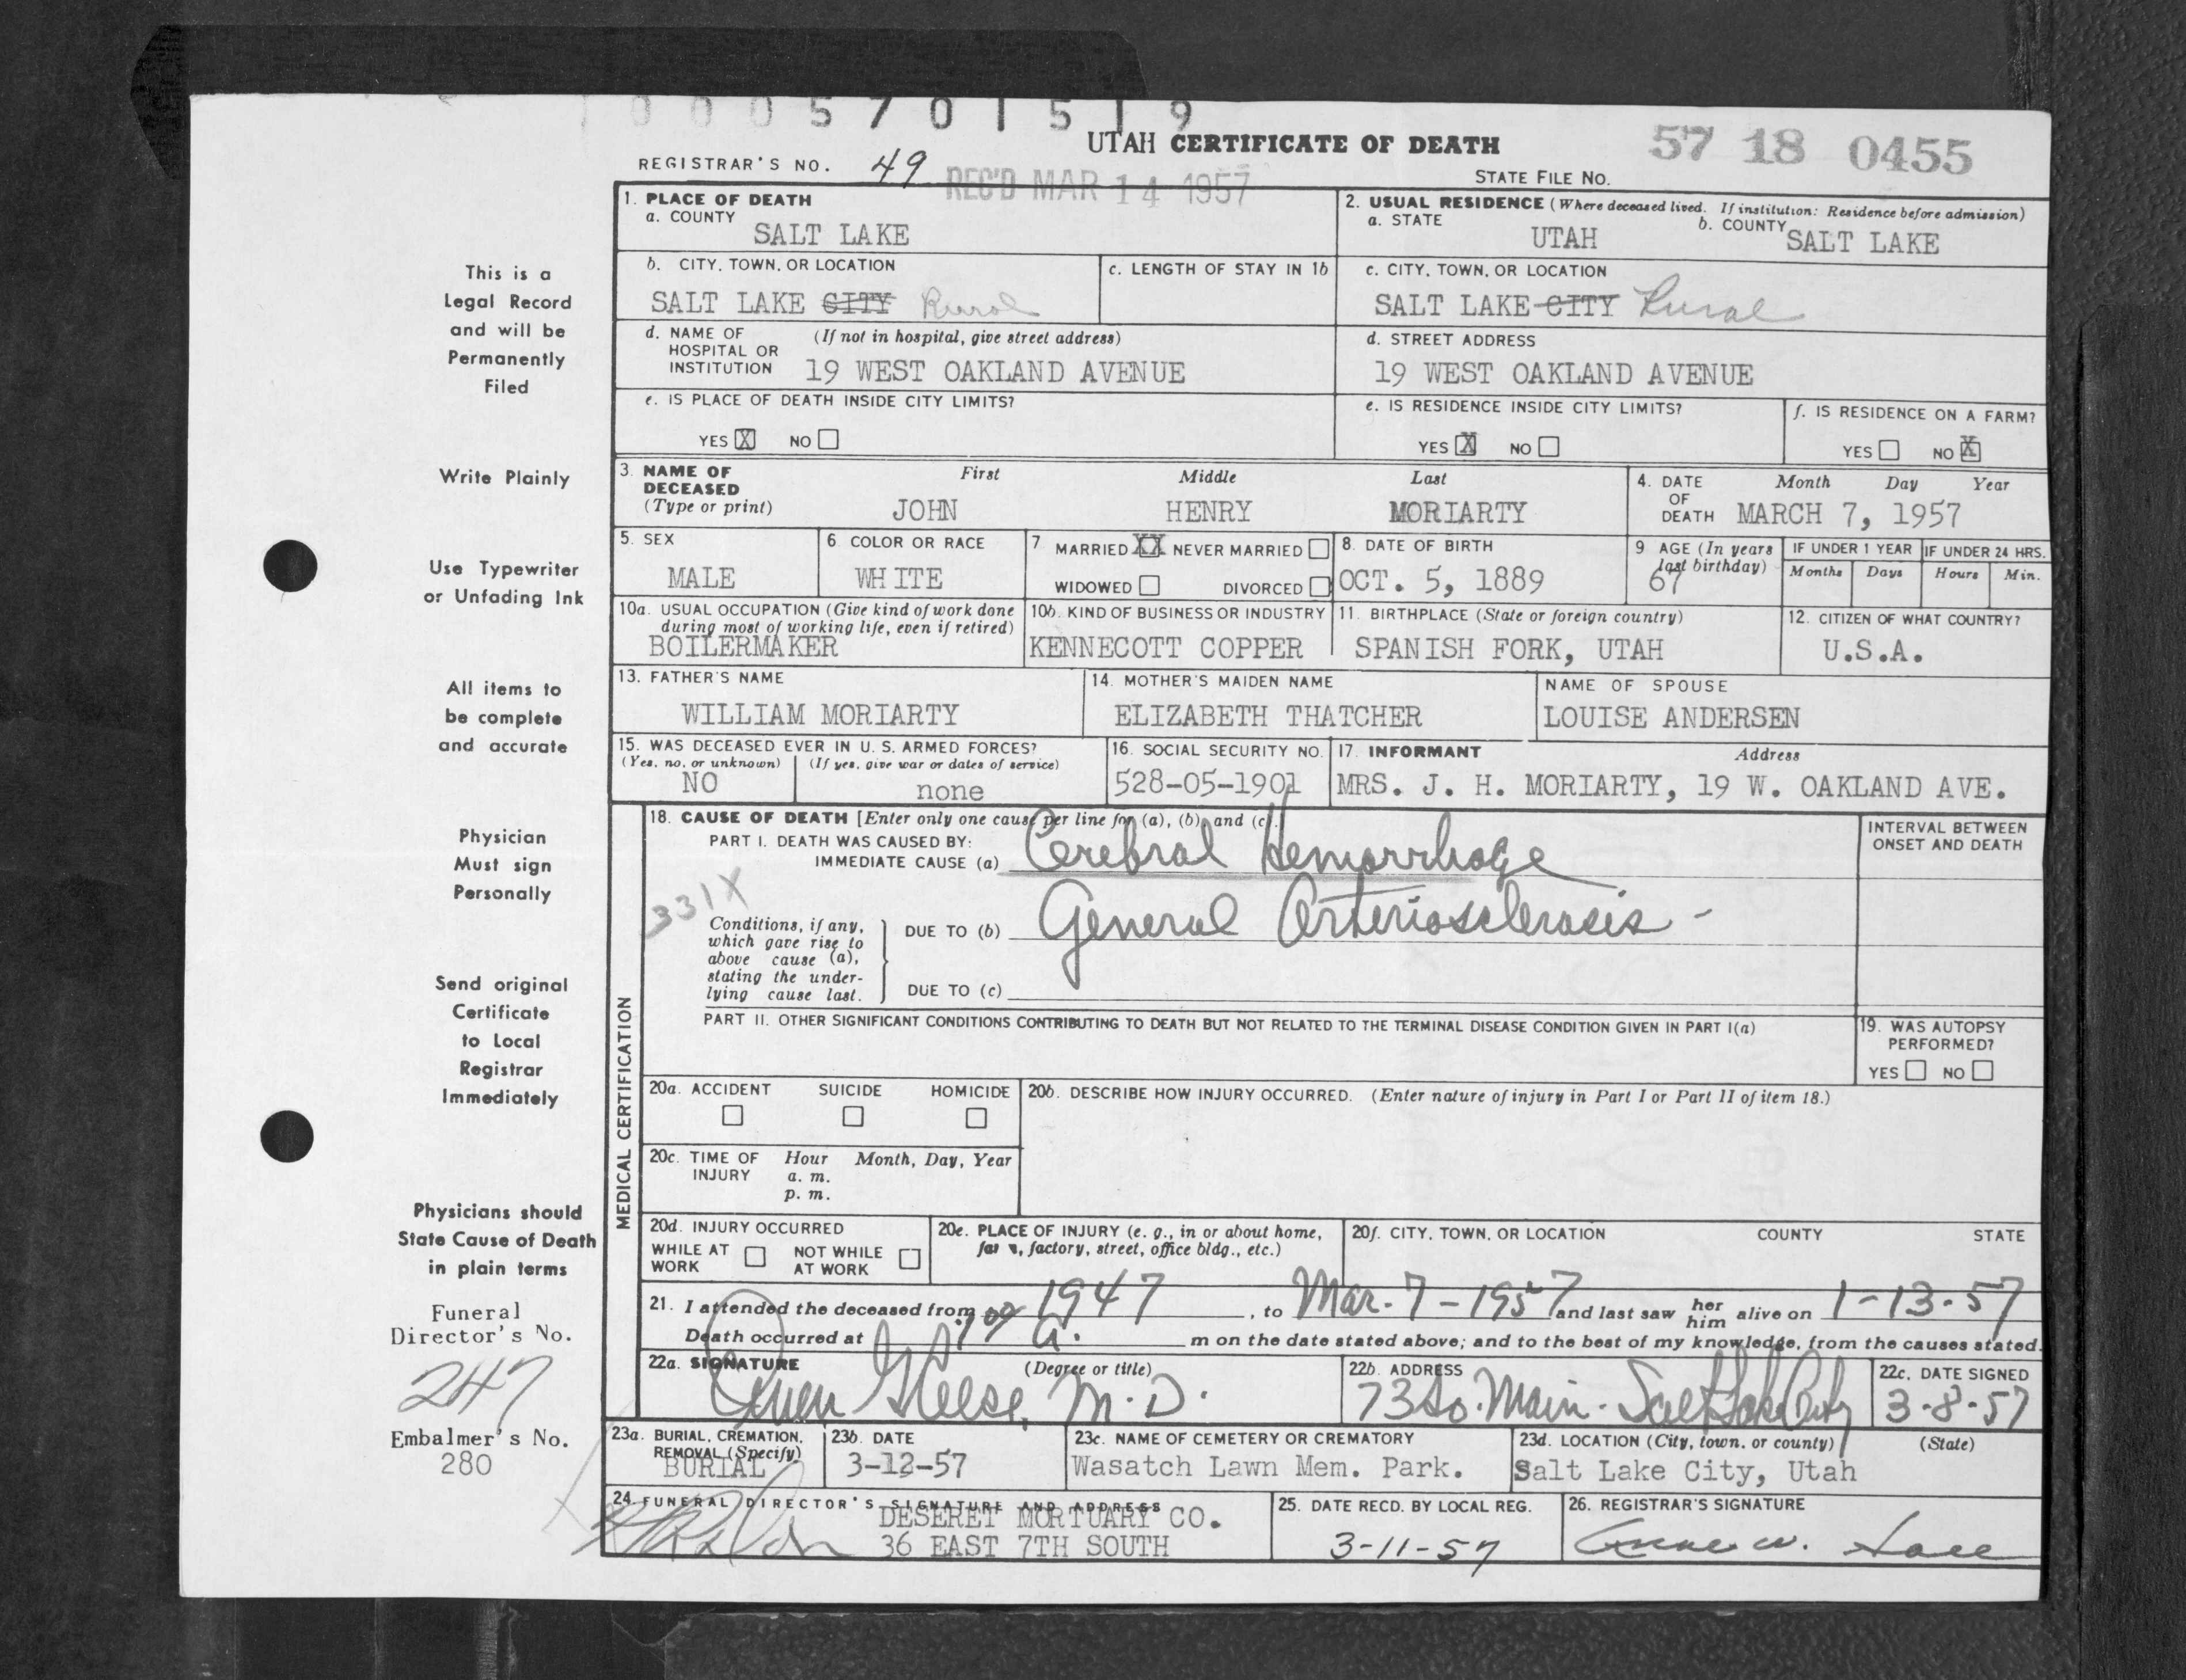 0005701519
UTAH CERTIFICATE OF DEATH
57 18 0455
REGISTRAR'S NO. 49
REC'D MAR 14 1957
STATE FILE NO.
1. PLACE OF DEATH
a. COUNTY
SALT LAKE
2. USUAL RESIDENCE (Where deceased lived. If institution: Residence before admission)
a. STATE b. COUNTY
UTAH SALT LAKE
This is a
Legal Record
and will be
Permanently
Filed
b. CITY, TOWN, OR LOCATION
SALT LAKE CITY Rural
c. LENGTH OF STAY IN 1b
c. CITY, TOWN, OR LOCATION
SALT LAKE CITY Rural
d. NAME OF (If not in hospital, give street address)
HOSPITAL OR
INSTITUTION 19 WEST OAKLAND AVENUE
d. STREET ADDRESS
19 WEST OAKLAND AVENUE
e. IS PLACE OF DEATH INSIDE CITY LIMITS?
YES X NO
e. IS RESIDENCE INSIDE CITY LIMITS?
YES X NO
f. IS RESIDENCE ON A FARM?
YES NO X
Write Plainly
3. NAME OF First Middle Last
DECEASED
(Type or print) JOHN HENRY MORIARTY
4. DATE Month Day Year
OF
DEATH MARCH 7, 1957
Use Typewriter
or Unfading Ink
5. SEX
MALE
6 COLOR OR RACE
WHITE
7 MARRIED XX NEVER MARRIED
WIDOWED DIVORCED
8. DATE OF BIRTH
OCT. 5, 1889
9 AGE (In years
last birthday)
67
IF UNDER 1 YEAR
Months Days
IF UNDER 24 HRS.
Hours Min.
10a. USUAL OCCUPATION (Give kind of work done
during most of working life, even if retired)
BOILERMAKER
10b. KIND OF BUSINESS OR INDUSTRY
KENNECOTT COPPER
11. BIRTHPLACE (State or foreign country)
SPANISH FORK, UTAH
12. CITIZEN OF WHAT COUNTRY?
U.S.A.
All items to
be complete
and accurate
13. FATHER'S NAME
WILLIAM MORIARTY
14. MOTHER'S MAIDEN NAME
ELIZABETH THATCHER
NAME OF SPOUSE
LOUISE ANDERSEN
15. WAS DECEASED EVER IN U. S. ARMED FORCES?
(Yes, no, or unknown) (If yes, give war or dates of service)
NO none
16. SOCIAL SECURITY NO.
528-05-1901
17. INFORMANT Address
MRS. J. H. MORIARTY, 19 W. OAKLAND AVE.
Physician
Must sign
Personally
MEDICAL CERTIFICATION
18. CAUSE OF DEATH [Enter only one cause per line for (a), (b), and (c).
PART I. DEATH WAS CAUSED BY:
IMMEDIATE CAUSE (a) Cerebral Hemorrhage
INTERVAL BETWEEN
ONSET AND DEATH
331X
Conditions, if any,
which gave rise to
above cause (a),
stating the under-
lying cause last.
DUE TO (b) General Arteriosclerosis -
DUE TO (c)
Send original
Certificate
to Local
Registrar
Immediately
PART II. OTHER SIGNIFICANT CONDITIONS CONTRIBUTING TO DEATH BUT NOT RELATED TO THE TERMINAL DISEASE CONDITION GIVEN IN PART I(a)
19. WAS AUTOPSY
PERFORMED?
YES NO
20a. ACCIDENT SUICIDE HOMICIDE
20b. DESCRIBE HOW INJURY OCCURRED. (Enter nature of injury in Part I or Part II of item 18.)
20c. TIME OF Hour Month, Day, Year
INJURY a. m.
p. m.
Physicians should
State Cause of Death
in plain terms
20d. INJURY OCCURRED
WHILE AT NOT WHILE
WORK AT WORK
20e. PLACE OF INJURY (e. g., in or about home,
farm, factory, street, office bldg., etc.)
20f. CITY, TOWN, OR LOCATION COUNTY STATE
21. I attended the deceased from 1947, to Mar. 7 - 1957 and last saw her him alive on 1-13-57
Death occurred at A. m on the date stated above; and to the best of my knowledge, from the causes stated.
Funeral
Director's No.
247
Embalmer's No.
280
22a. SIGNATURE (Degree or title)
Owen Reese, M.D.
22b. ADDRESS
73 So. Main. Salt Lake City
22c. DATE SIGNED
3-8-57
23a. BURIAL, CREMATION,
REMOVAL (Specify)
BURIAL
23b. DATE
3-12-57
23c. NAME OF CEMETERY OR CREMATORY
Wasatch Lawn Mem. Park.
23d. LOCATION (City, town, or county) (State)
Salt Lake City, Utah
24. FUNERAL DIRECTOR'S SIGNATURE AND ADDRESS
DESERET MORTUARY CO.
36 EAST 7TH SOUTH
25. DATE RECD. BY LOCAL REG.
3-11-57
26. REGISTRAR'S SIGNATURE